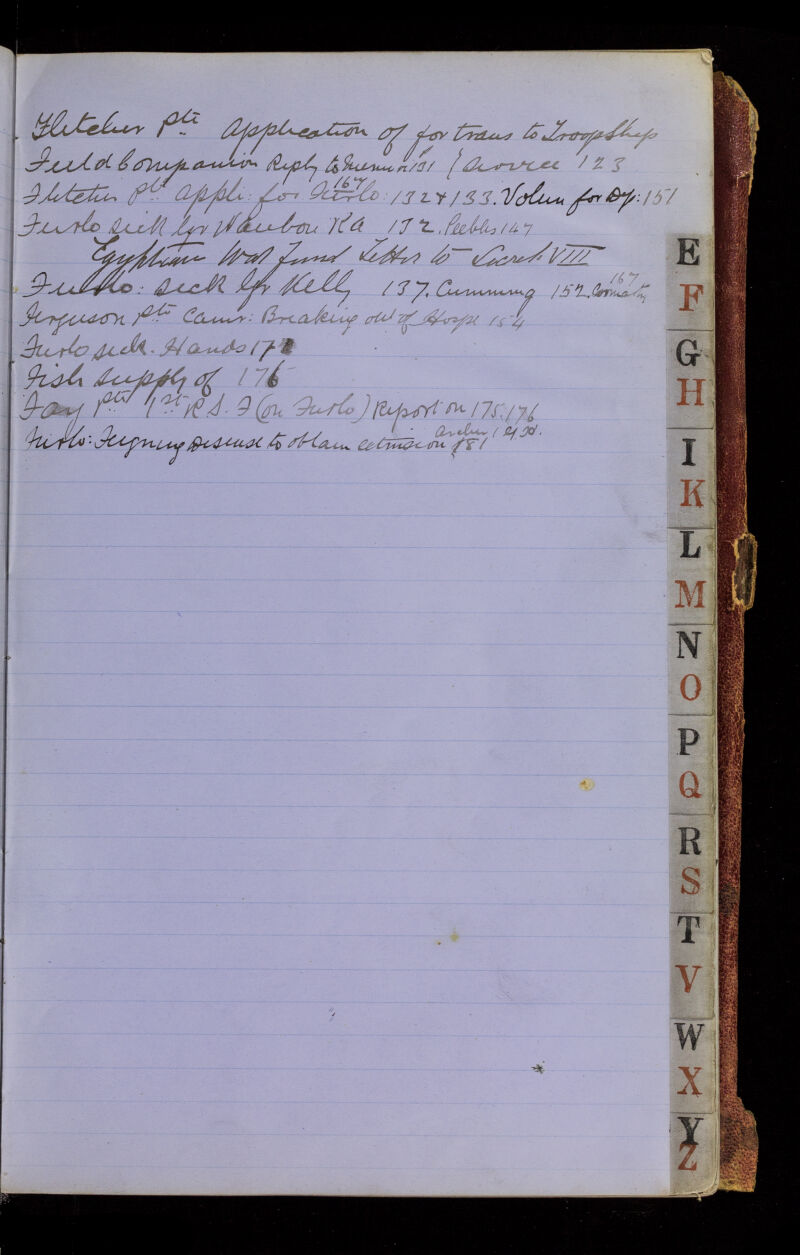 Fletcher Pte Application of for trans to TroopShip
Field Companion Reply to Memo on 131 / Service 123
Fletcher Pte appli: for Furlo: 132 & 133. Volun for Dy: 151
167
Furlo sick lv RA 132. Peebles 147
Egyptian War Fund Letter to Secret VIII
Furlo: sick lv Kelly 137. Cumming 152.
167
Ferguson Pte Camr: Breaking out of Hospl 154
Furlo sick. Hands 17
Fish supply of 176
Fay Pte 1st R S. F (on Furlo) Report on 175.176
Furlo: Feigning disease to obtain extension 181
Archer
E
F
G
H
I
K
L
M
N
O
P
Q
R
S
T
V
W
X
Y
Z